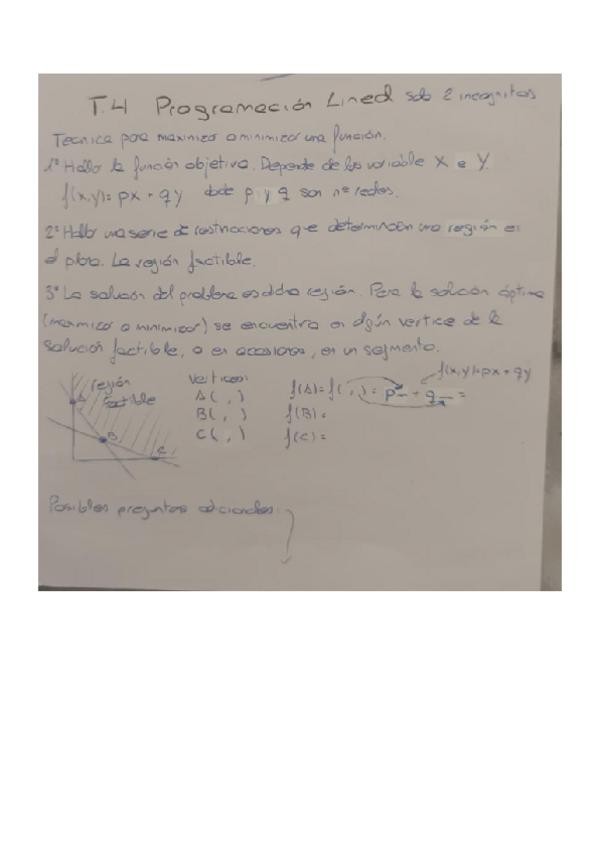 T.4 Programación Lineal solo 2 incognitas
Tecnica para maximizar o minimizar una función.
1º Hallo la función objetivo. Depende de las variable X e Y.
f(x,y)= px + qy donde p y q son nº reales.
2º Hallo una serie de restricciones que determinan una región en
el plano. La región factible.
3º La solución del problema es dicha región. Pero la solución óptima
(maximizar o minimizar) se encuentra en algún vertice de la
solución factible, o en ocasiones, en un segmento.
región factible
A
B
C
Vertices:
A( , )
B( , )
C( , )
f(x,y)=px + qy
f(A)= f( , )= p_ + q_ =
f(B)=
f(C)=
Posibles preguntas adicionales: